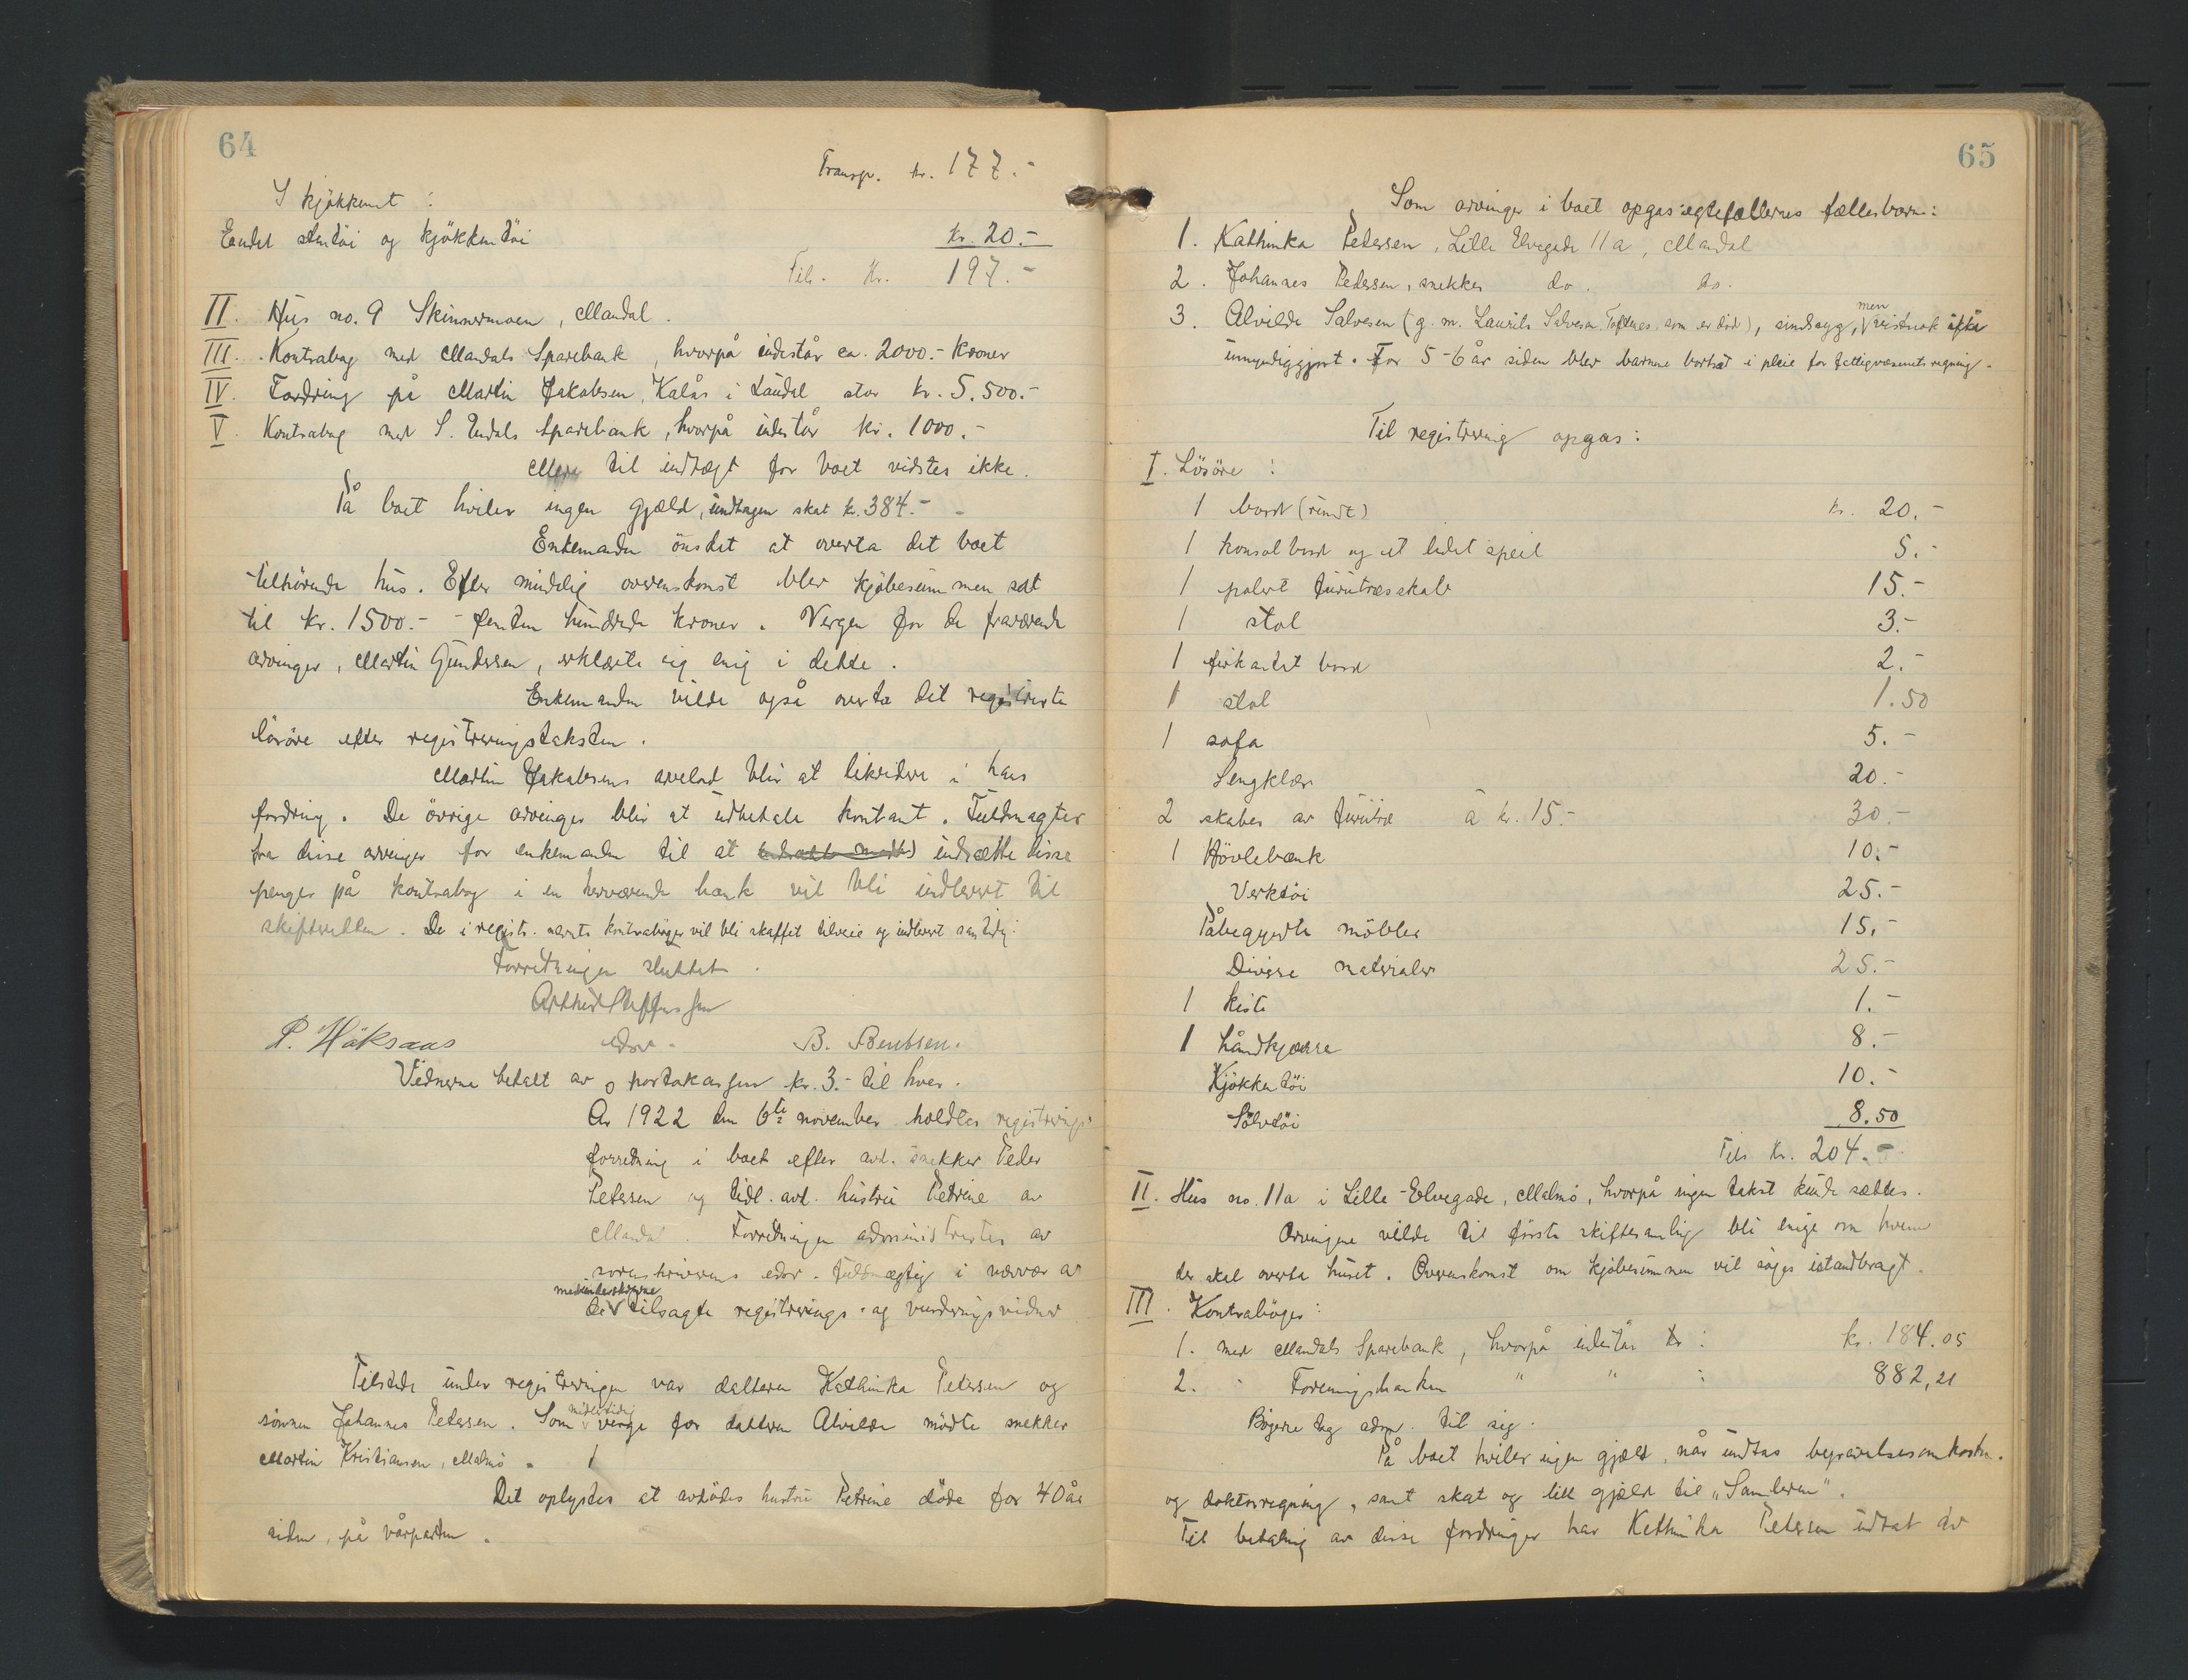 64
Transp. kr. 177.-
I kjøkkenet :
Endel stentøi og kjøkkentøi kr. 20.-
Tils. Kr. 197.-
II. Hus no. 9 Skinnermoen, Mandal.
III. Kontrabog med Mandals Sparebank, hvorpå indestår ca. 2000.- kroner
IV. Fordring på Martin Jakobsen, Kalås i Laudal stor kr. 5.500.-
V. Kontrabog med S. Undals Sparebank, hvorpå indestår kr. 1000.-
Mere til indtægt for boet vidstes ikke.
På boet hviler ingen gjæld, undtagen skat kr. 384.-
Enkemanden ønsket at overta det boet
tilhørende hus. Efter mindelig overenskomst blev kjøbesummen sat
til kr. 1500.- - femten hundrede kroner. Vergen for de fraværende
arvinger, Martin Gundersen, erklærte sig enig i dette.
Enkemanden vilde også overta det registrerte
løsøre efter registreringstaksten.
Martin Jakobsens arvelod blir at likvidere i hans
fordring. De øvrige arvinger blir at utbetale kontant. Fuldmagter
fra disse arvinger for enkemanden til at indsætte disse
penger på kontrabog i en herværende bank vil bli indlevert til
skifteretten. De i registr. nævnte kontrabøger vil bli skaffet tilveie og indlevert samtidig.
Forretningen sluttet.
edsv.
P. Håksaas B. Bentsen.
Vidnerne betalt av sportelkassen kr. 3.- til hver.
År 1922 den 6te november holdtes registrerings-
forretning i boet efter avd. snekker Peder
Petersen og tidl. avd. hustru Petrine av
Mandal. Forretningen administrertes av
sorenskriverens edsv. fuldmægtig i nærvær av
medunderskrevne
de tilsagte registrerings- og vurderingsvidner
Tilstede under registreringen var datteren Kathinka Petersen og
midlertidig
sønnen Johannes Petersen. Som verge for datteren Alvilde møtte snekker
Martin Kristiansen, Malmø.
Det oplystes at avdødes hustru Petrine døde for 40 år
siden, på vårparten.
65
Som arvinger i boet opgas egtefællernes fællesbarn:
1. Kathinka Petersen, Lille Elvegade 11a, Mandal
2. Johannes Petersen, snekker do. do.
men
3. Alvilde Salvesen (g. m. Laurits Salvesen Toftenes som er død), sindssyg, vistnok ikke
umyndiggjort. For 5-6 år siden blev barnene bortsat i pleie for fattigvæsenets regning.
Til registrering opgas:
I. Løsøre :
1 bord (rundt) kr. 20.-
1 konsolbord og et litet speil 5.-
1 polert furutræsskab 15.-
1 stol 3.-
1 firkantet bord 2.-
1 stol 1.50
1 sofa 5.-
Sengklær 20.-
2 skaber av furutræ à kr. 15.- 30.-
1 Høvlebænk 10.-
Verktøi 25.-
Påbegyndte møbler 15.-
Diverse materialer 25.-
1 kiste 1.-
1 håndkjærre 8.-
Kjøkkentøi 10.-
Sølvtøi 8.50
Tils kr. 204.-
II. Hus no. 11a i Lille-Elvegade, Malmø, hvorpå ingen takst kunde sættes.
Arvingene vilde til første skiftesamling bli enige om hvem
der skal overta huset. Overenskomst om kjøbesummen vil søges istandbragt.
III. Kontrabøger:
1. med Mandals Sparebank, hvorpå indestår kr : kr. 184.05
2. " Foreningsbanken " " : 882,21
Bøgerne tog adm. til sig.
På boet hviler ingen gjæld, når undtas begravelsesomkostn.
og doktorregning, samt skat og litt gjæld til "Samleren".
Til betaling av disse fordringer har Kathinka Petersen uttat av